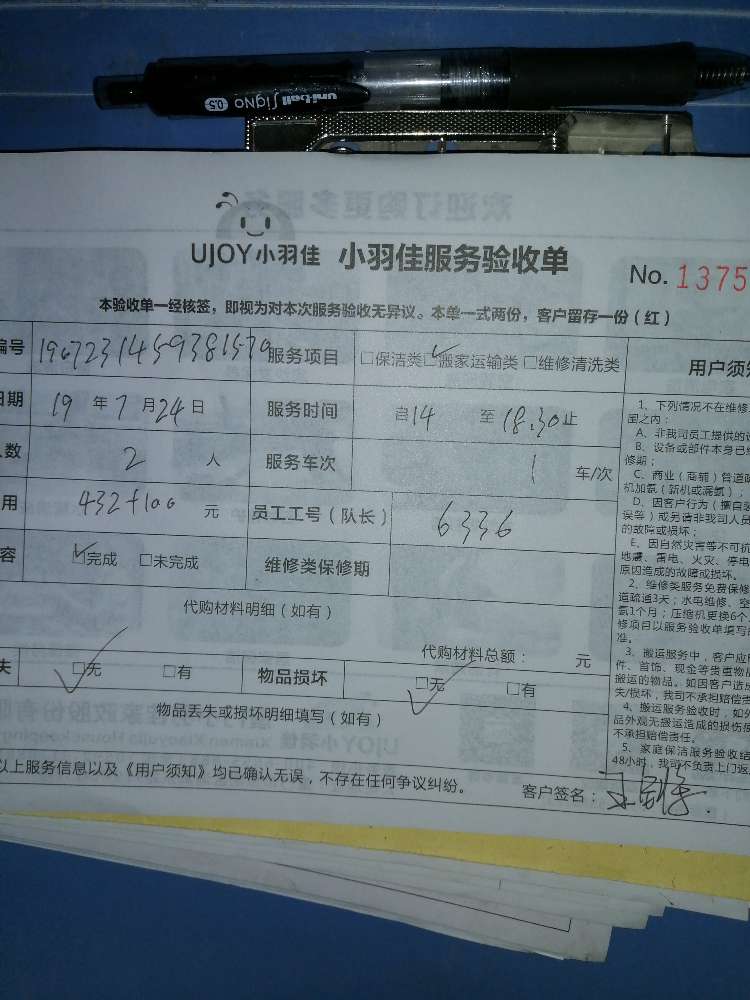 uni-ball Signo 0.5
欢迎订购更多服务
UJOY小羽佳 小羽佳服务验收单
No. 1375
本验收单一经核签，即视为对本次服务验收无异议。本单一式两份，客户留存一份（红）
编号 服务项目 □保洁类 ☑搬家运输类 □维修清洗类
用户须知
日期 19 年 7 月 24 日 服务时间 自 14 至 18.30 止
人数 2 人 服务车次 1 车/次
用 432+100 元 员工工号（队长） 6336
容 ☑完成 □未完成 维修类保修期
代购材料明细（如有）
代购材料总额： 元
失 ☑无 □有 物品损坏 ☑无 □有
物品丢失或损坏明细填写（如有）
以上服务信息以及《用户须知》均已确认无误，不存在任何争议纠纷。
客户签名：
1、下列情况不在维修
围之内：
A、非我司员工提供的
B、设备或部件本身已
修期；
C、商业（商铺）管道
机加氨（新机或漏氟）；
D、因客户行为（擅自
误等）或另请非我司人员
的故障或损坏；
E、因自然灾害等不可抗
地震、雷电、火灾、停电
原因造成的故障或损坏。
2、维修类服务免费保修
道疏通3天；水电维修、空
氨1个月；压缩机更换6个
修项目以服务验收单填写
准。
3、搬运服务中，客户应
件、首饰、现金等贵重物
搬运的物品。如因客户造成
失/损坏，我司不承担赔偿责
4、搬运服务验收时，如外
品外观无搬运造成的损伤
不承担赔偿责任。
5、家庭保洁服务验收结
48小时，我司不负责上门返